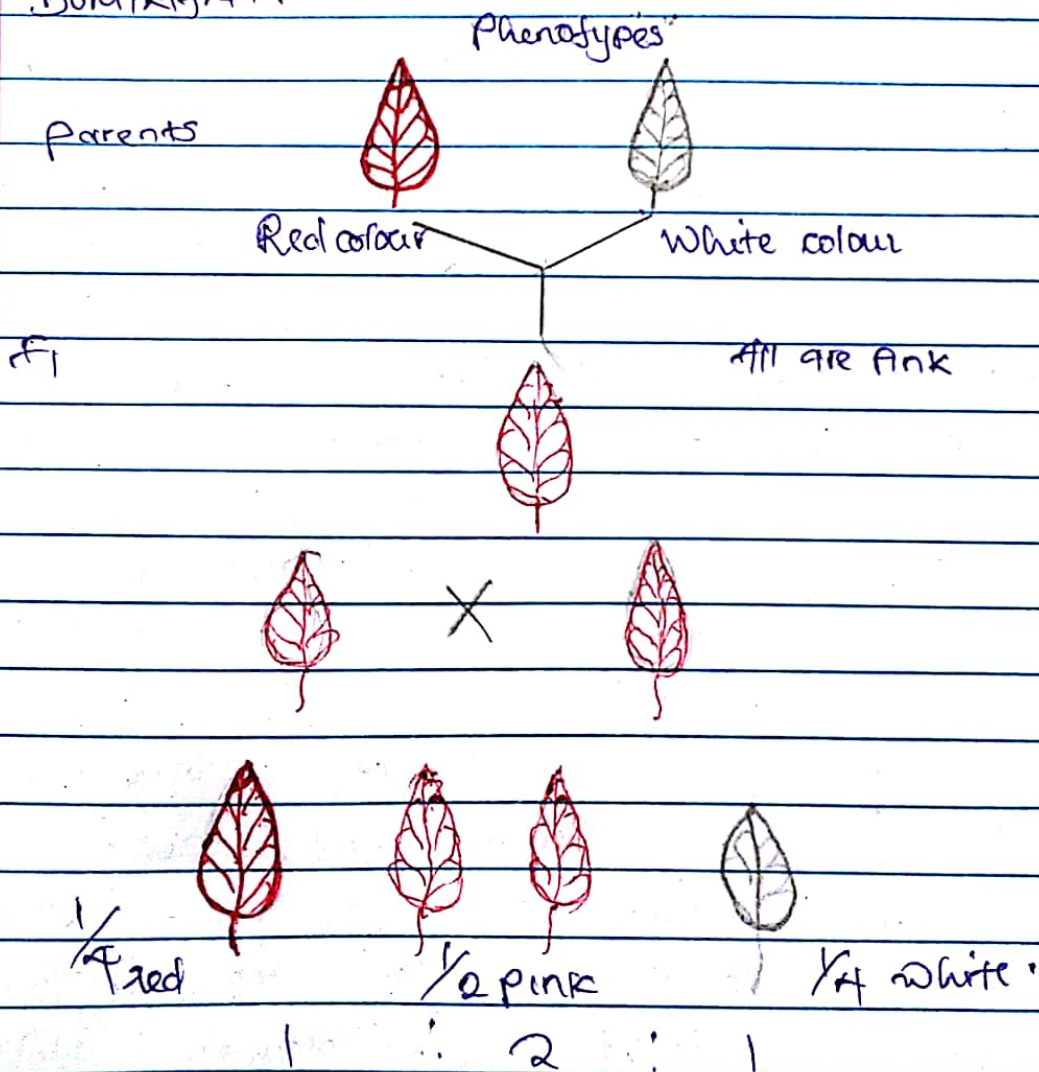 Phenotypes
Parents
Red colour White colour
F1 All are Pink
X
1/4 red 1/2 pink 1/4 white.
1 : 2 : 1